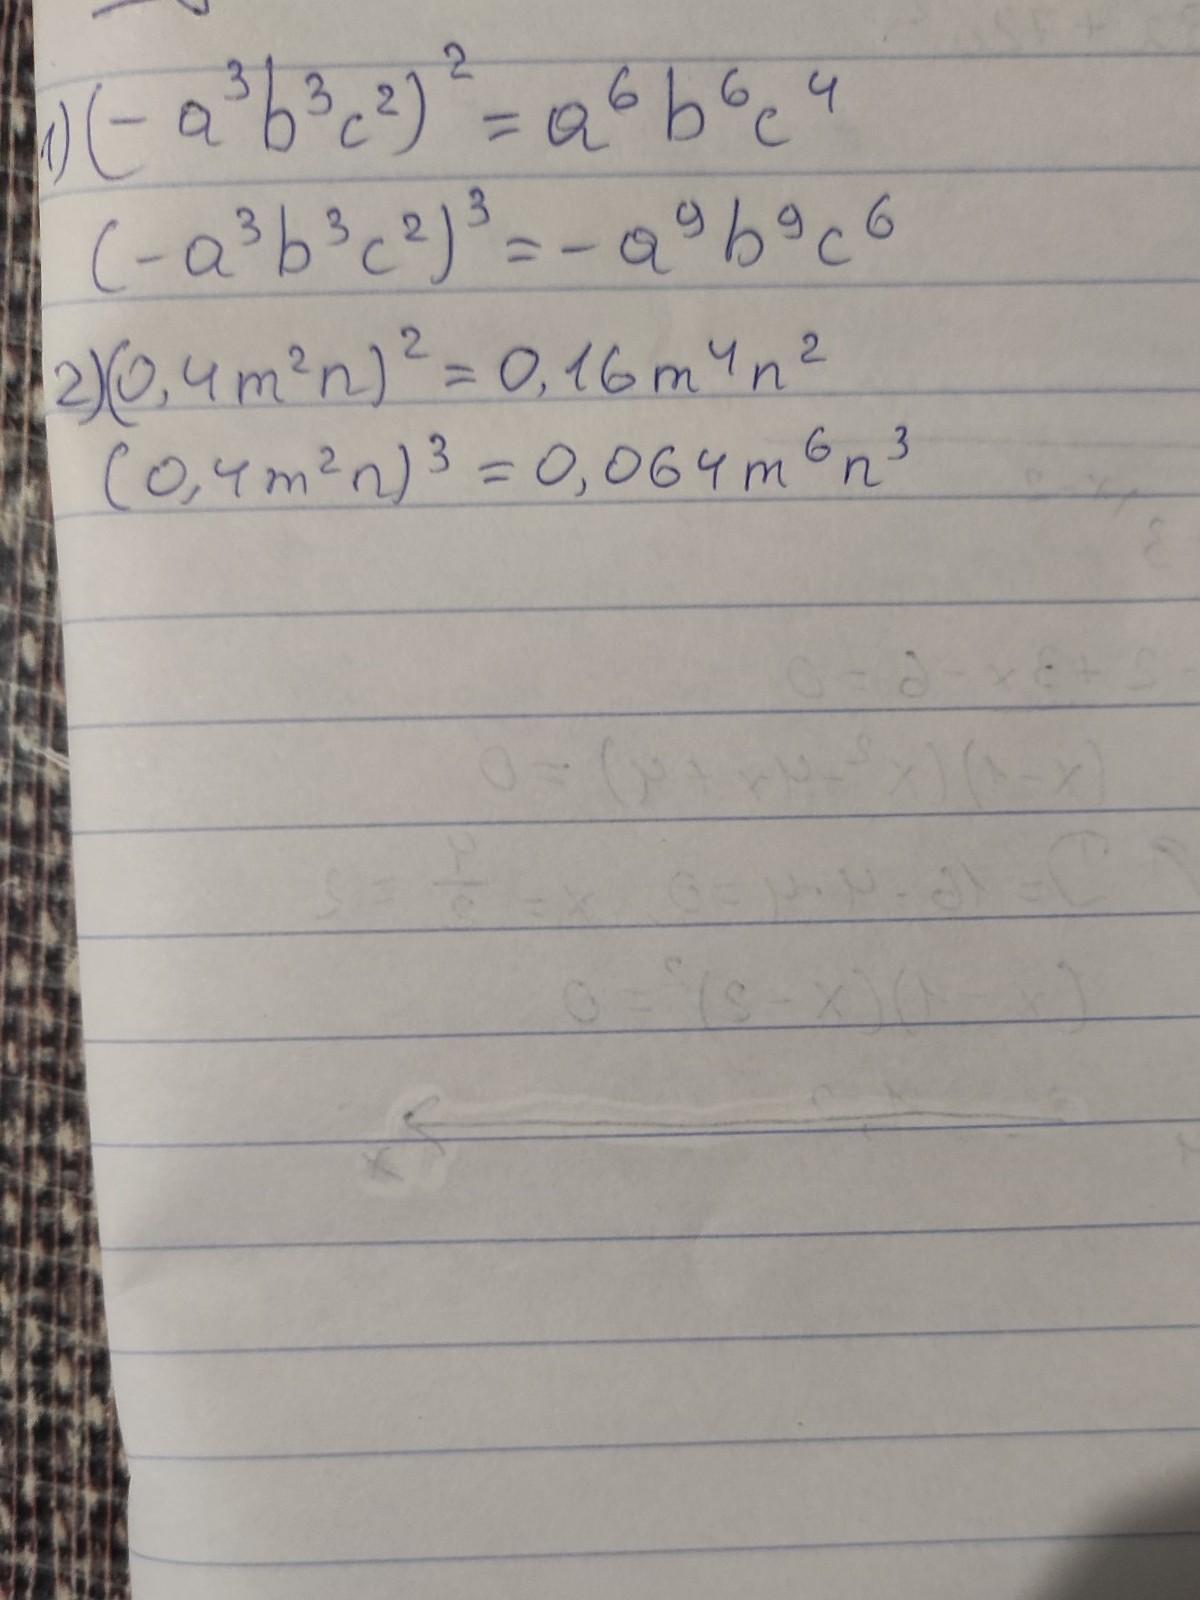 1) (-a³b³c²)² = a⁶b⁶c⁴
(-a³b³c²)³ = -a⁹b⁹c⁶
2) (0,4m²n)² = 0,16m⁴n²
(0,4m²n)³ = 0,064m⁶n³